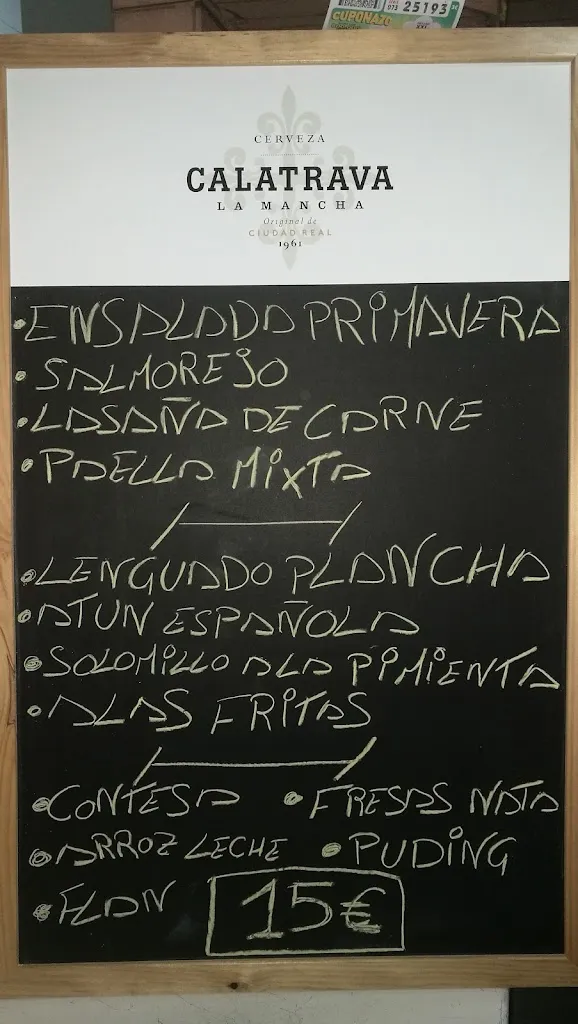 25193
CUPONAZO
CERVEZA
CALATRAVA
LA MANCHA
Original de
CIUDAD REAL
1961
• ENSALADA PRIMAVERA
• SALMOREJO
• LASAÑA DE CARNE
• PAELLA MIXTA
• LENGUADO PLANCHA
• ATUN ESPAÑOLA
• SOLOMILLO A LA PIMIENTA
• ALAS FRITAS
• CONTESA • FRESAS NATA
• ARROZ LECHE • PUDING
• FLAN 15€